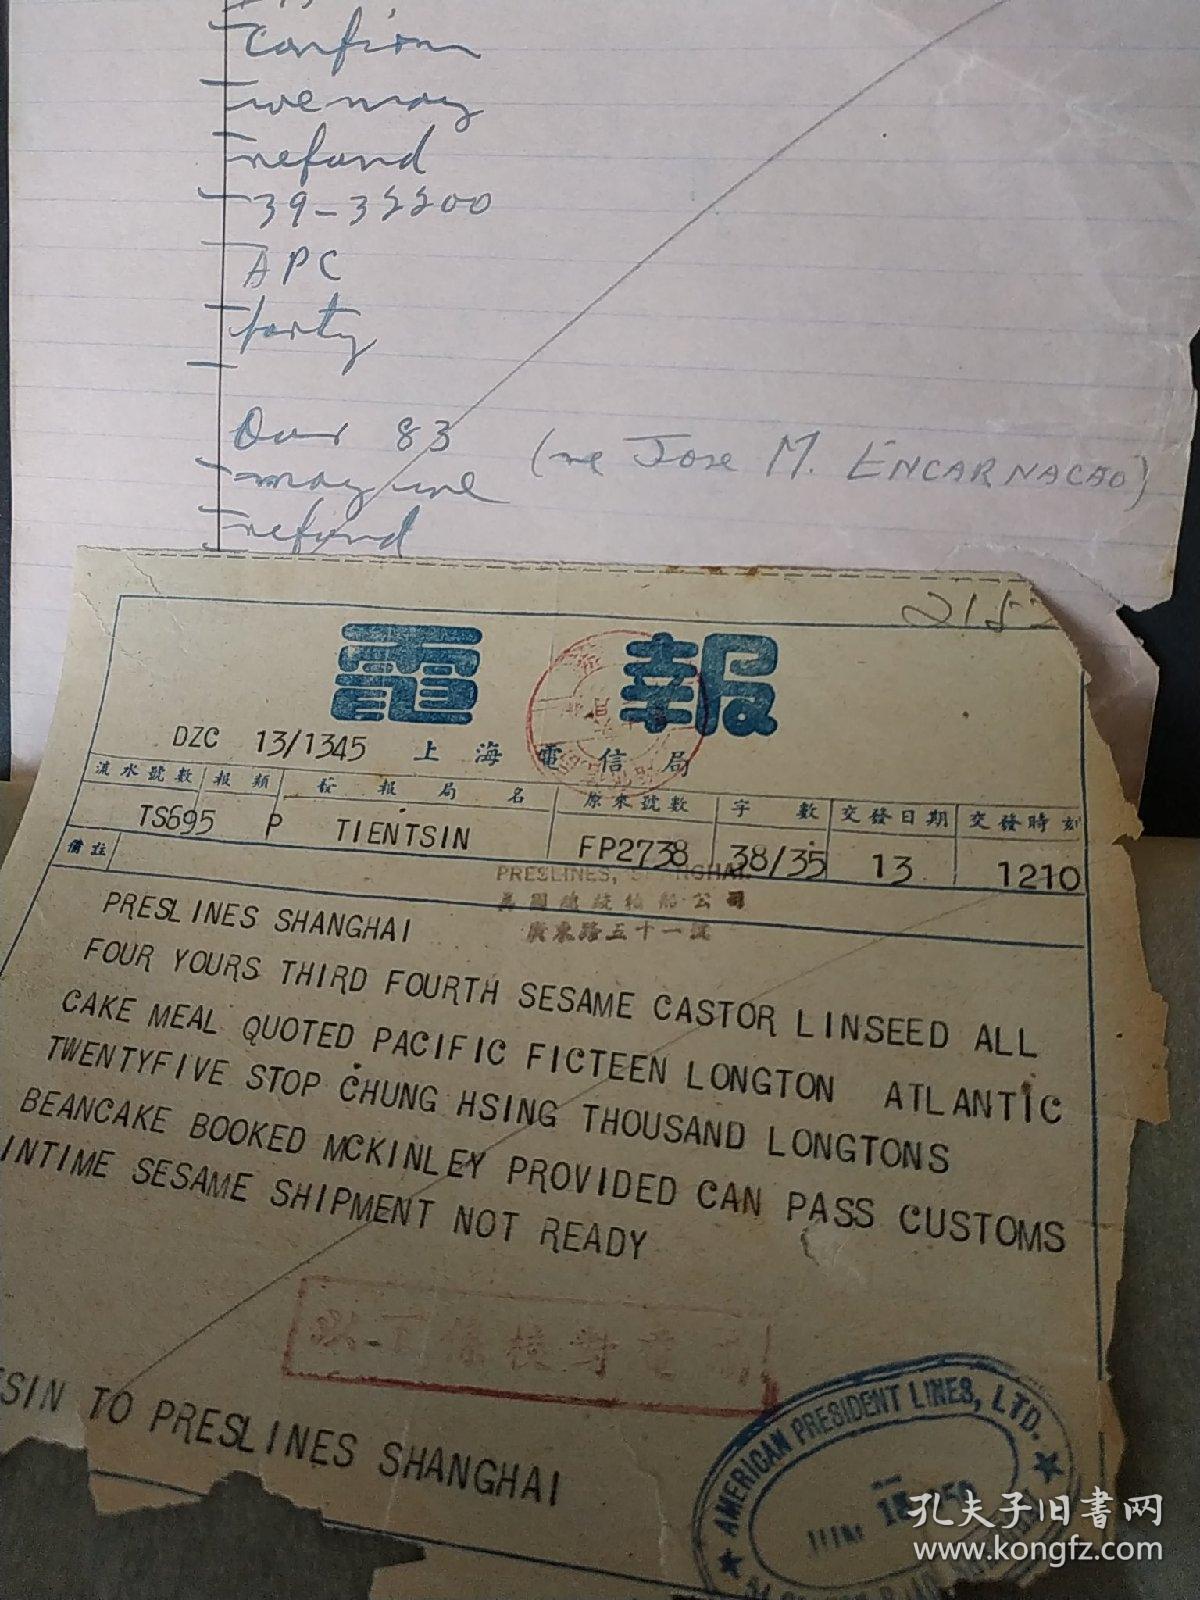 Confirm
we may
refund
39-35500
APC
party
Our 83 (re Jose M. ENCARNACAO)
may we
refund
電報
DZC 13/1345 上海電信局
流水號數 報類 發報局名 原來號數 字數 交發日期 交發時刻
TS695 P TIENTSIN FP2738 38/35 13 1210
備註
PRESLINES, SHANGHAI.
美國總統輪船公司
廣東路五十一號
PRESLINES SHANGHAI
FOUR YOURS THIRD FOURTH SESAME CASTOR LINSEED ALL
CAKE MEAL QUOTED PACIFIC FICTEEN LONGTON ATLANTIC
TWENTYFIVE STOP CHUNG HSING THOUSAND LONGTONS
BEANCAKE BOOKED MCKINLEY PROVIDED CAN PASS CUSTOMS
INTIME SESAME SHIPMENT NOT READY
SIN TO PRESLINES SHANGHAI
AMERICAN PRESIDENT LINES, LTD.
JUN 18
孔夫子旧書网
www.kongfz.com